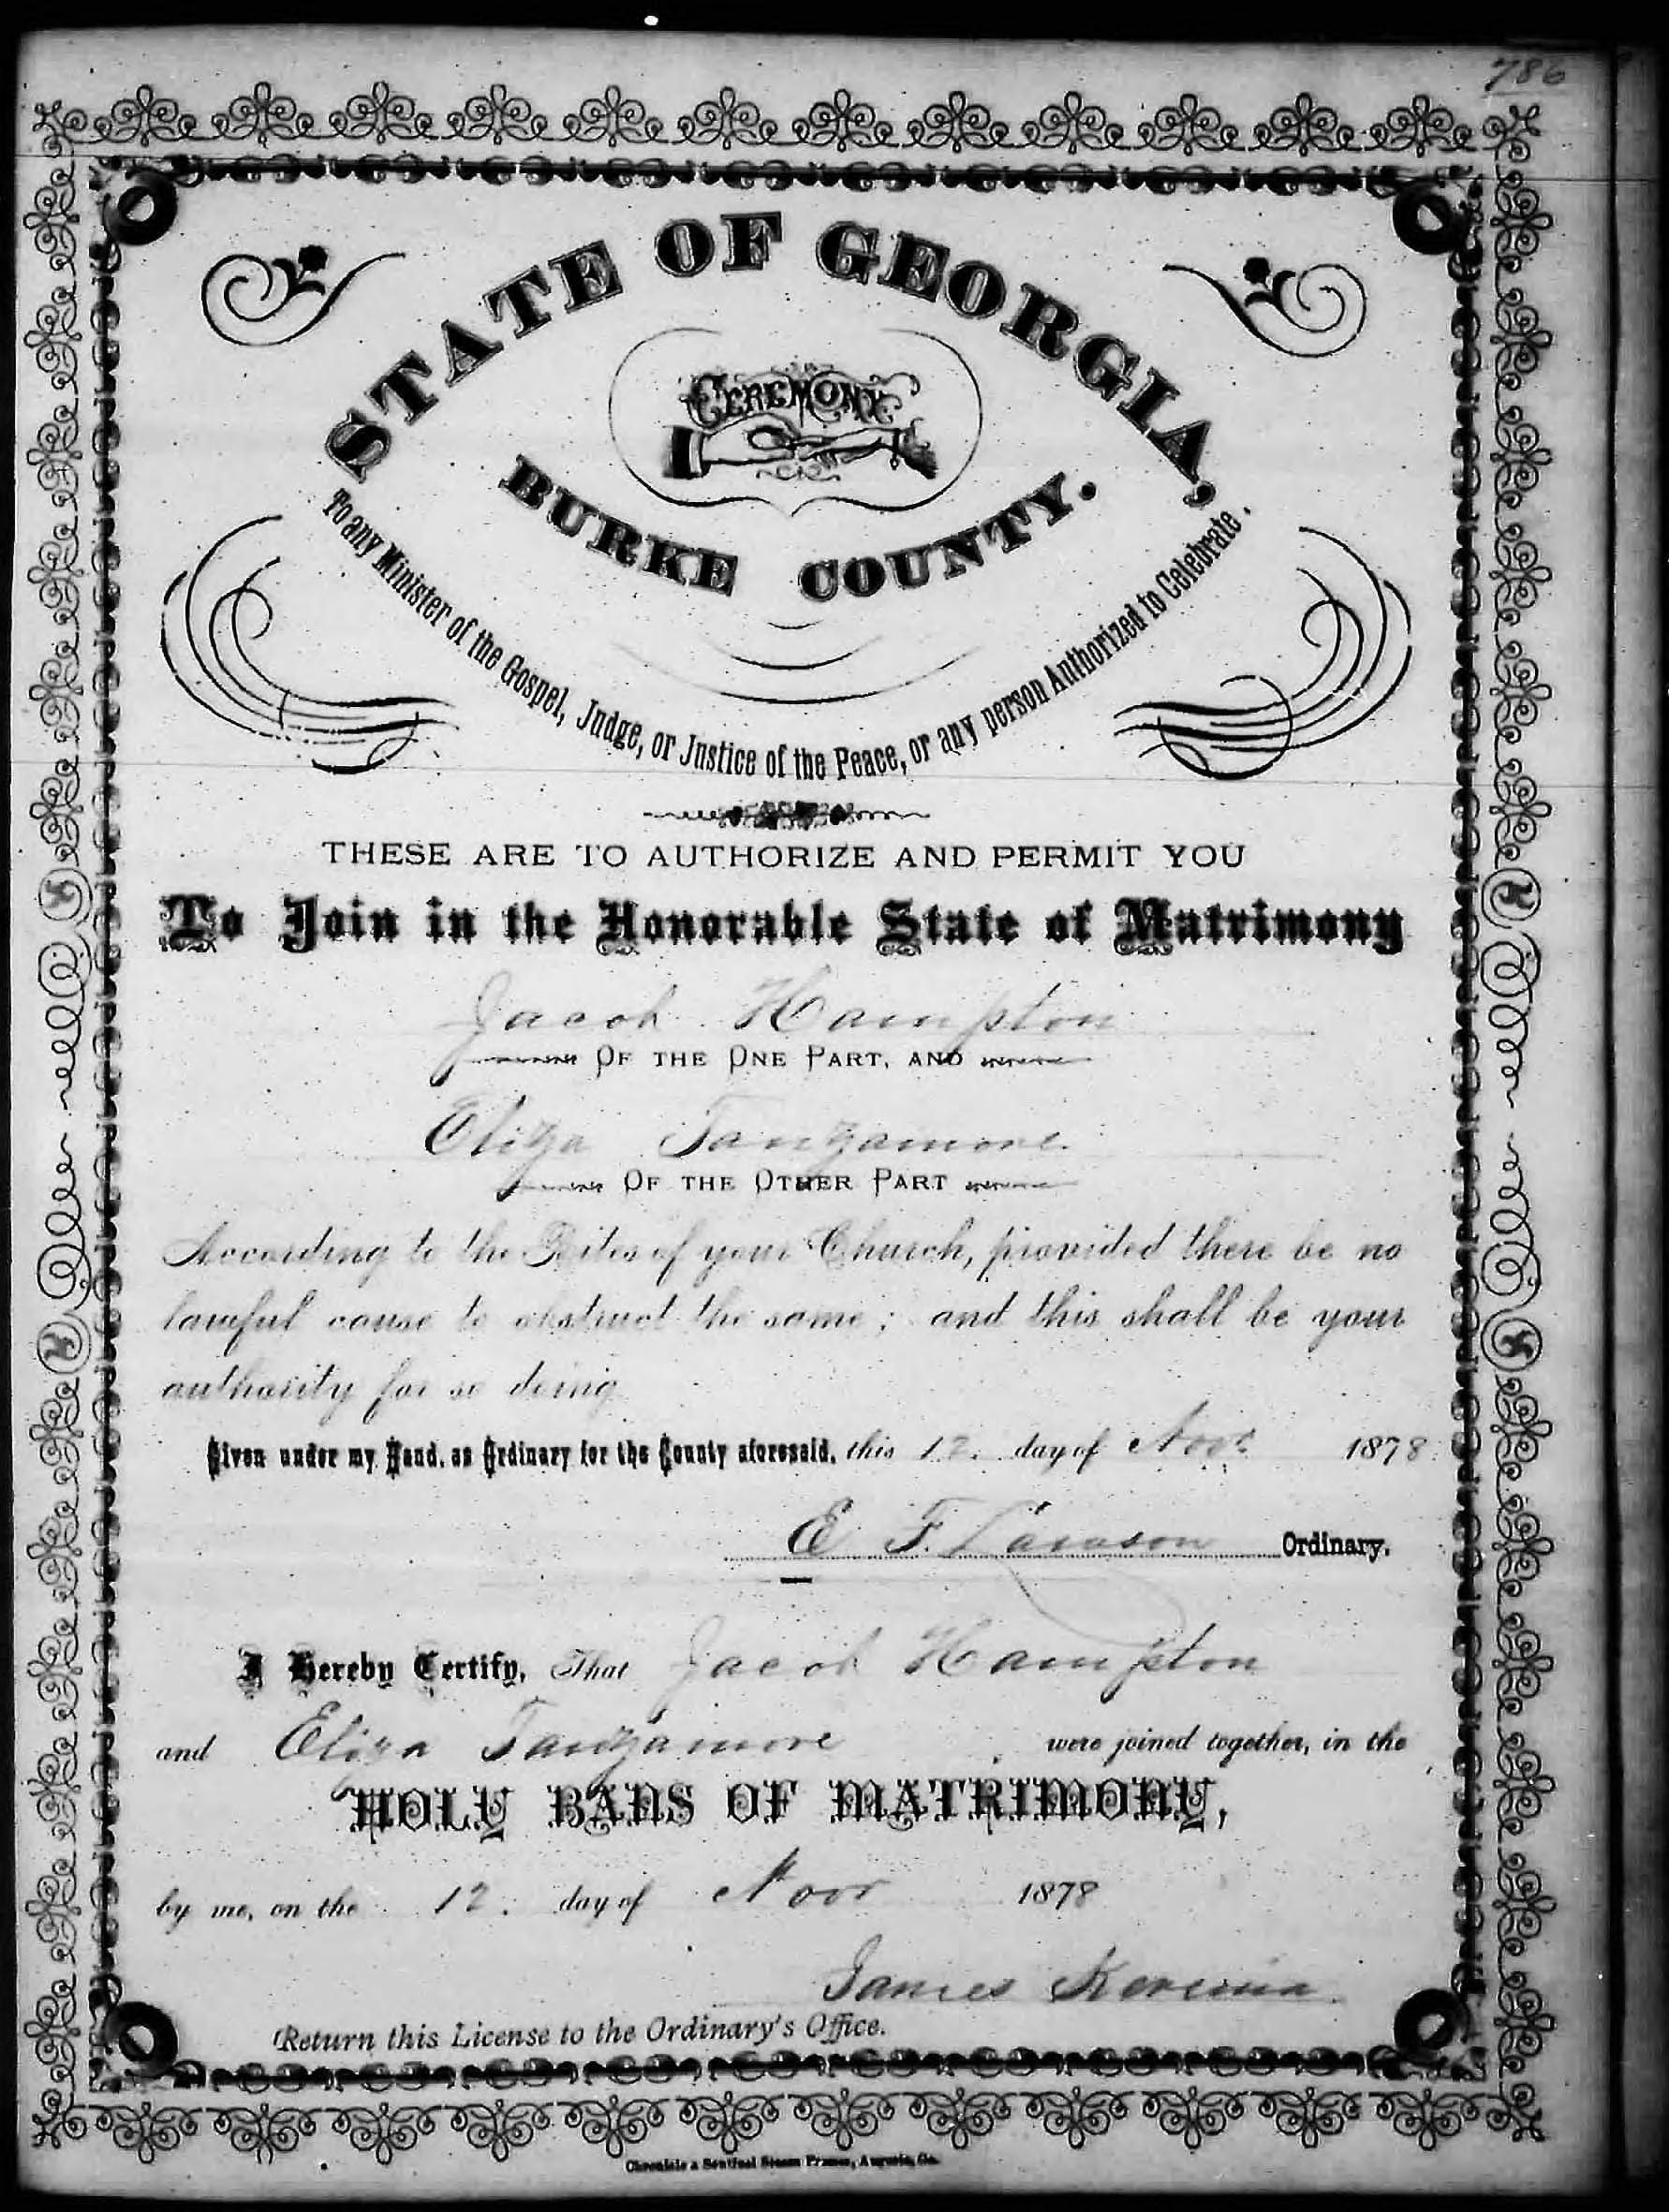 786
STATE OF GEORGIA,
CEREMONY
BURKE COUNTY.
To any Minister of the Gospel, Judge, or Justice of the Peace, or any person Authorized to Celebrate.
THESE ARE TO AUTHORIZE AND PERMIT YOU
To Join in the Honorable State of Matrimony
Jacob Hampton
OF THE ONE PART, AND
Eliza Tanzamore
OF THE OTHER PART
According to the Rites of your Church, provided there be no
lawful cause to obstruct the same; and this shall be your
authority for so doing
Given under my Hand, as Ordinary for the County aforesaid, this 12. day of Novr 1878
E F. Lawson Ordinary.
I Hereby Certify, That Jacob Hampton
and Eliza Tanzamore were joined together, in the
HOLY BANS OF MATRIMONY,
by me, on the 12. day of Novr 1878
James
Return this License to the Ordinary's Office.
Chronicle & Sentinel Steam Presses, Augusta, Ga.